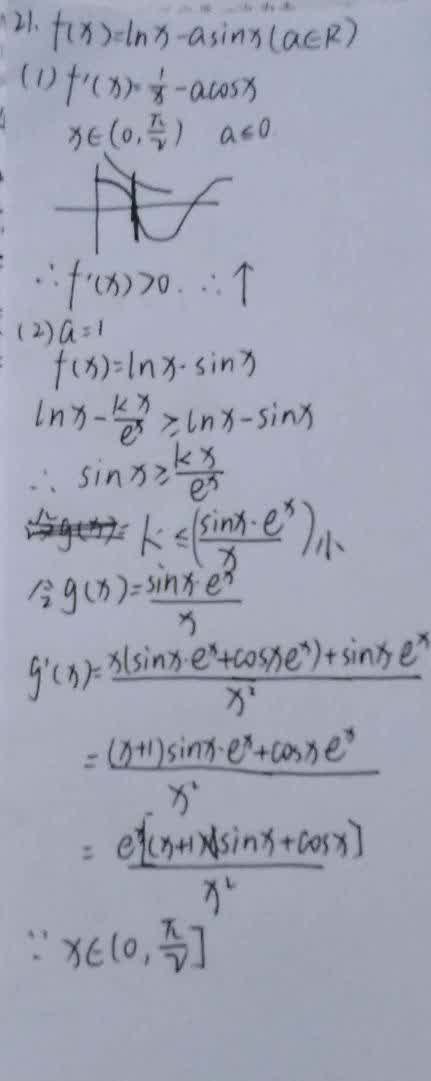 21. f(x)=lnx-asinx(a∈R)
(1) f'(x)=1/x-acosx
x∈(0,π/2) a≤0
∴f'(x)>0. ∴↑
(2)a=1
f(x)=lnx-sinx
lnx-kx/e^x≥lnx-sinx
∴ sinx≥kx/e^x
k≤(sinx·e^x/x)小
令g(x)=sinx·e^x/x
g'(x)=x(sinx·e^x+cosxe^x)+sinxe^x/x²
=(x+1)sinx·e^x+cosxe^x/x²
=e^x[(x+1)sinx+cosx]/x²
∵x∈(0,π/2]